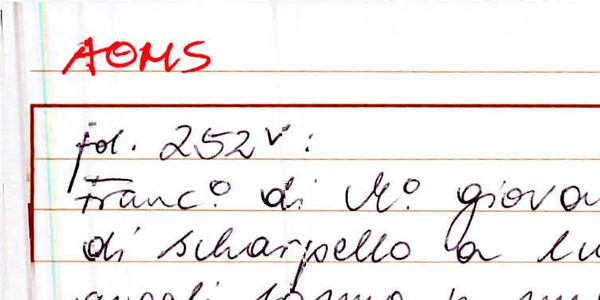 AOMS
fol. 252v:
Franc.o di M.o giova
di scharpello a lu